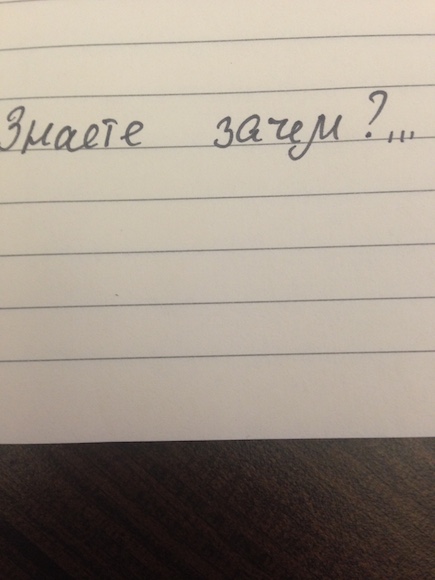 Знаете зачем?...